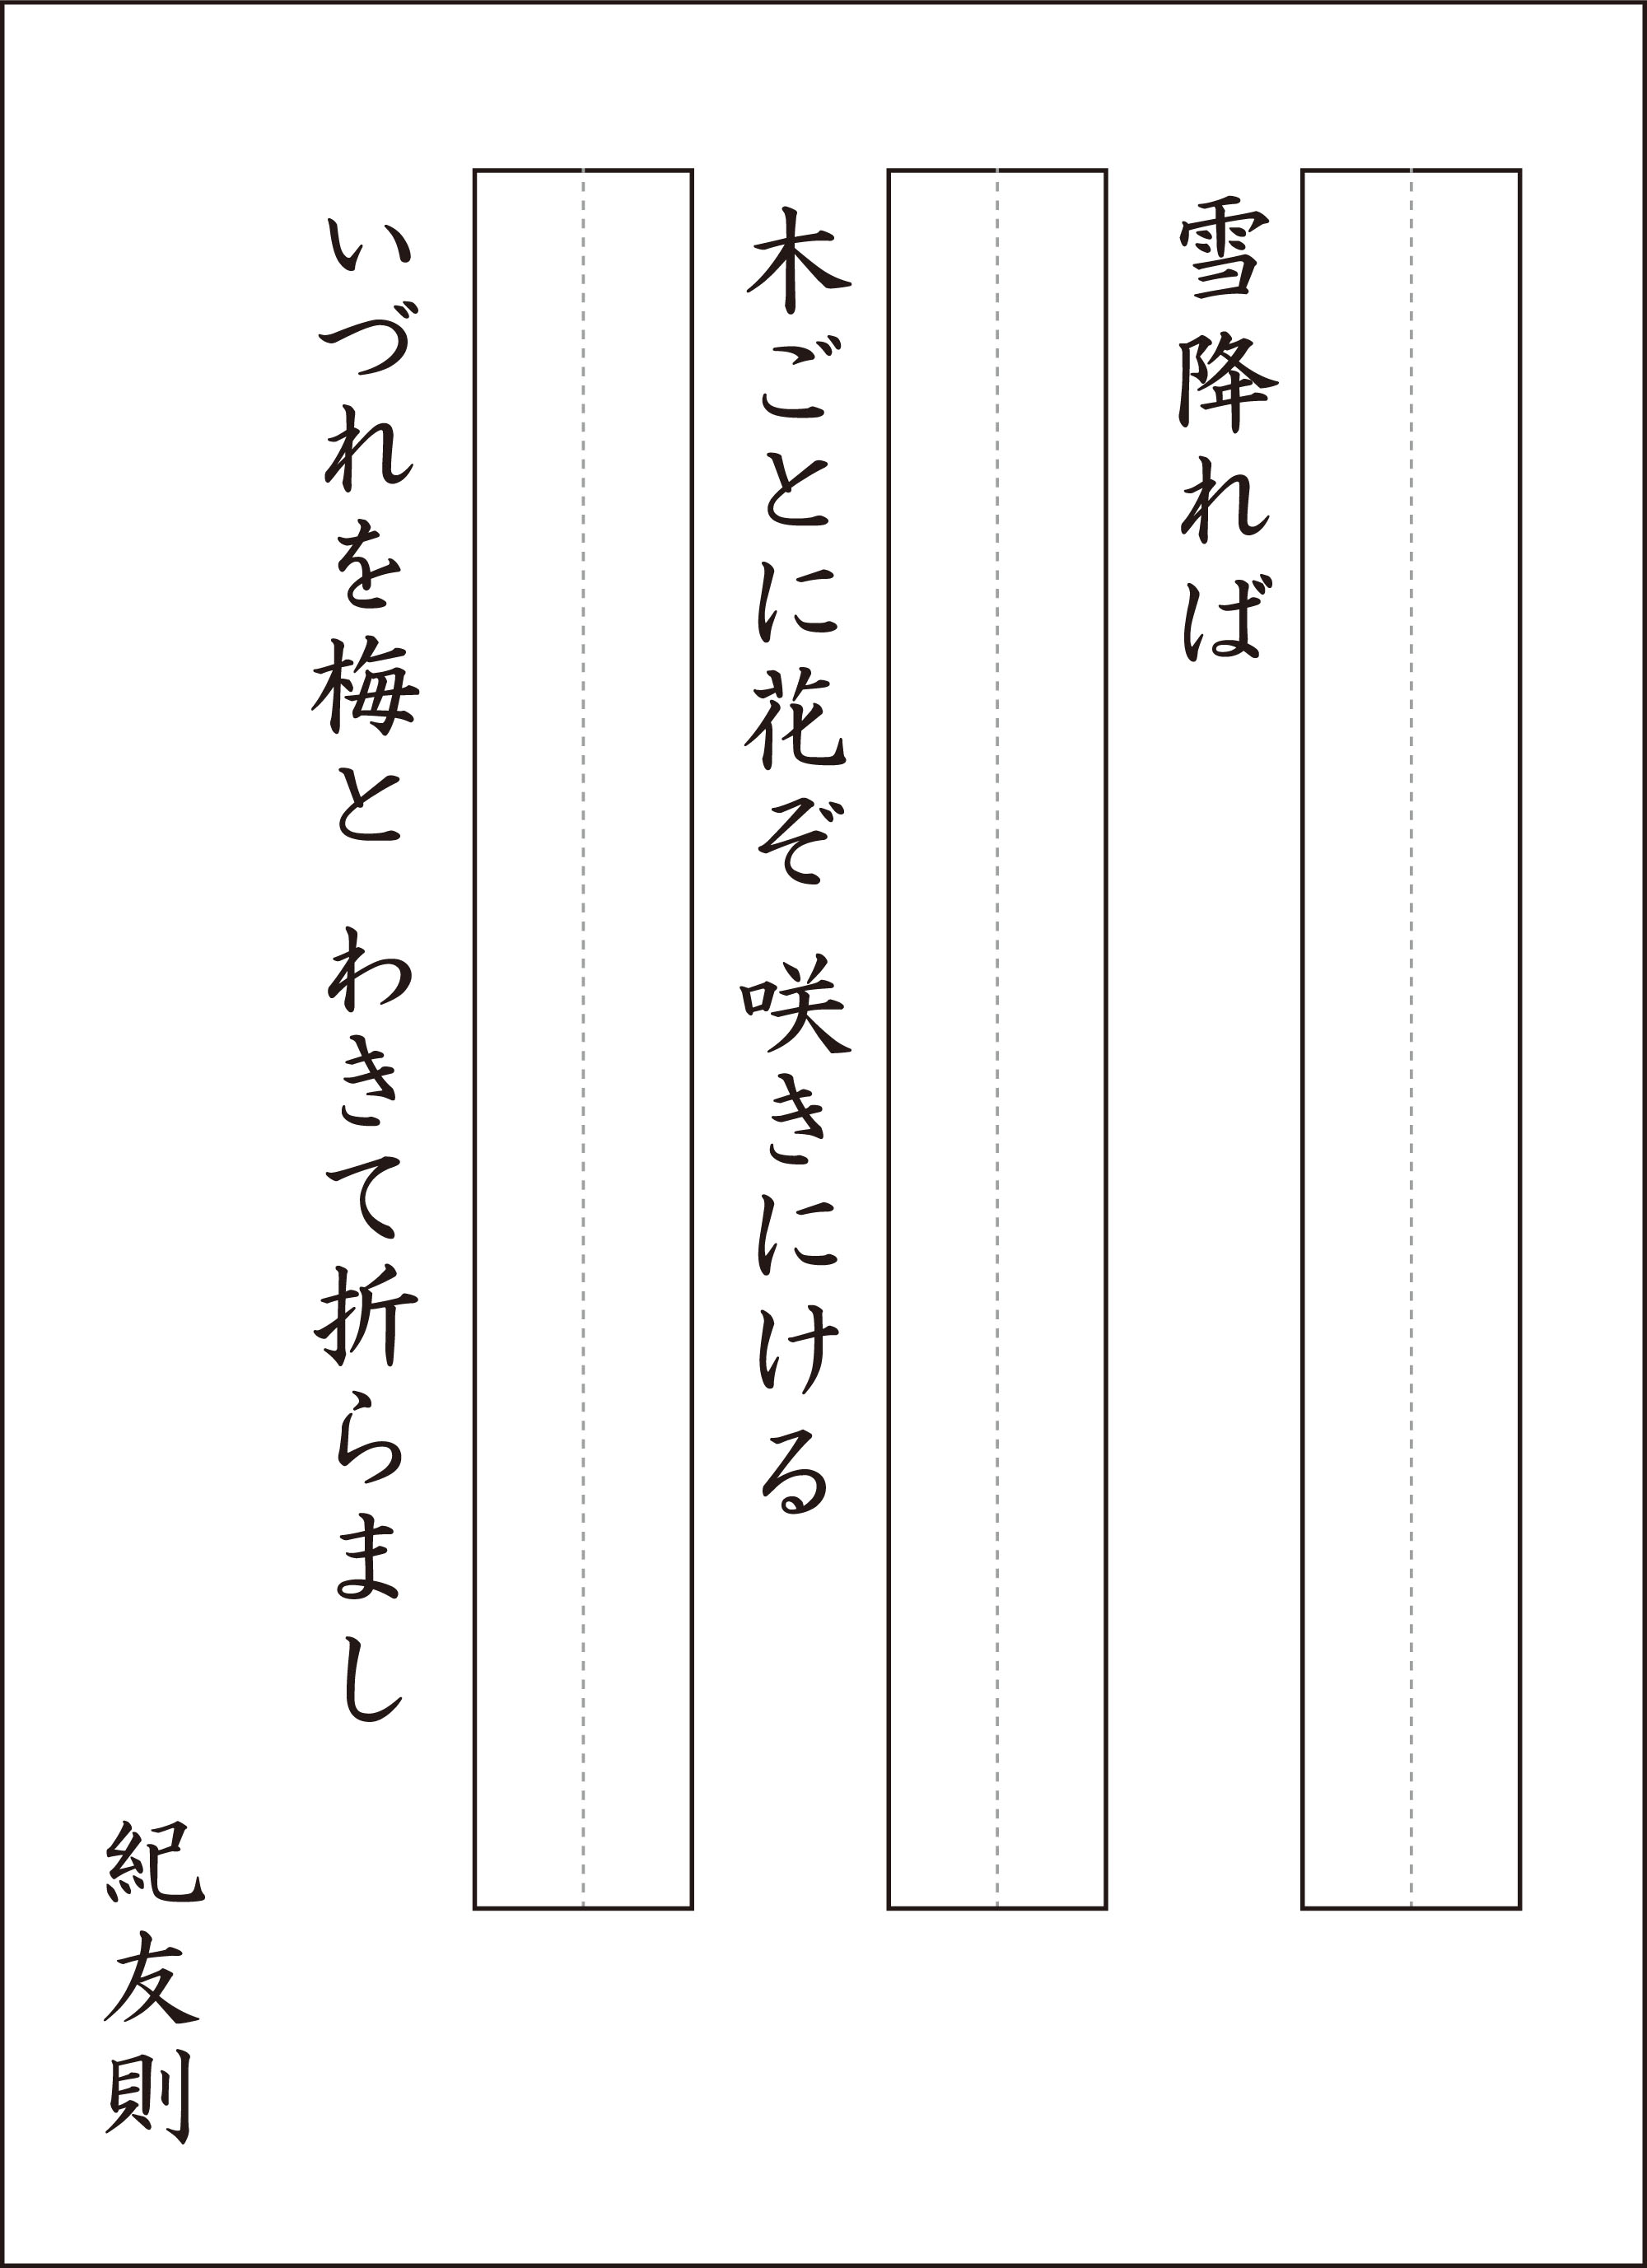 雪降れば
木ごとに花ぞ 咲きにける
いづれを梅と わきて折らまし
紀友則